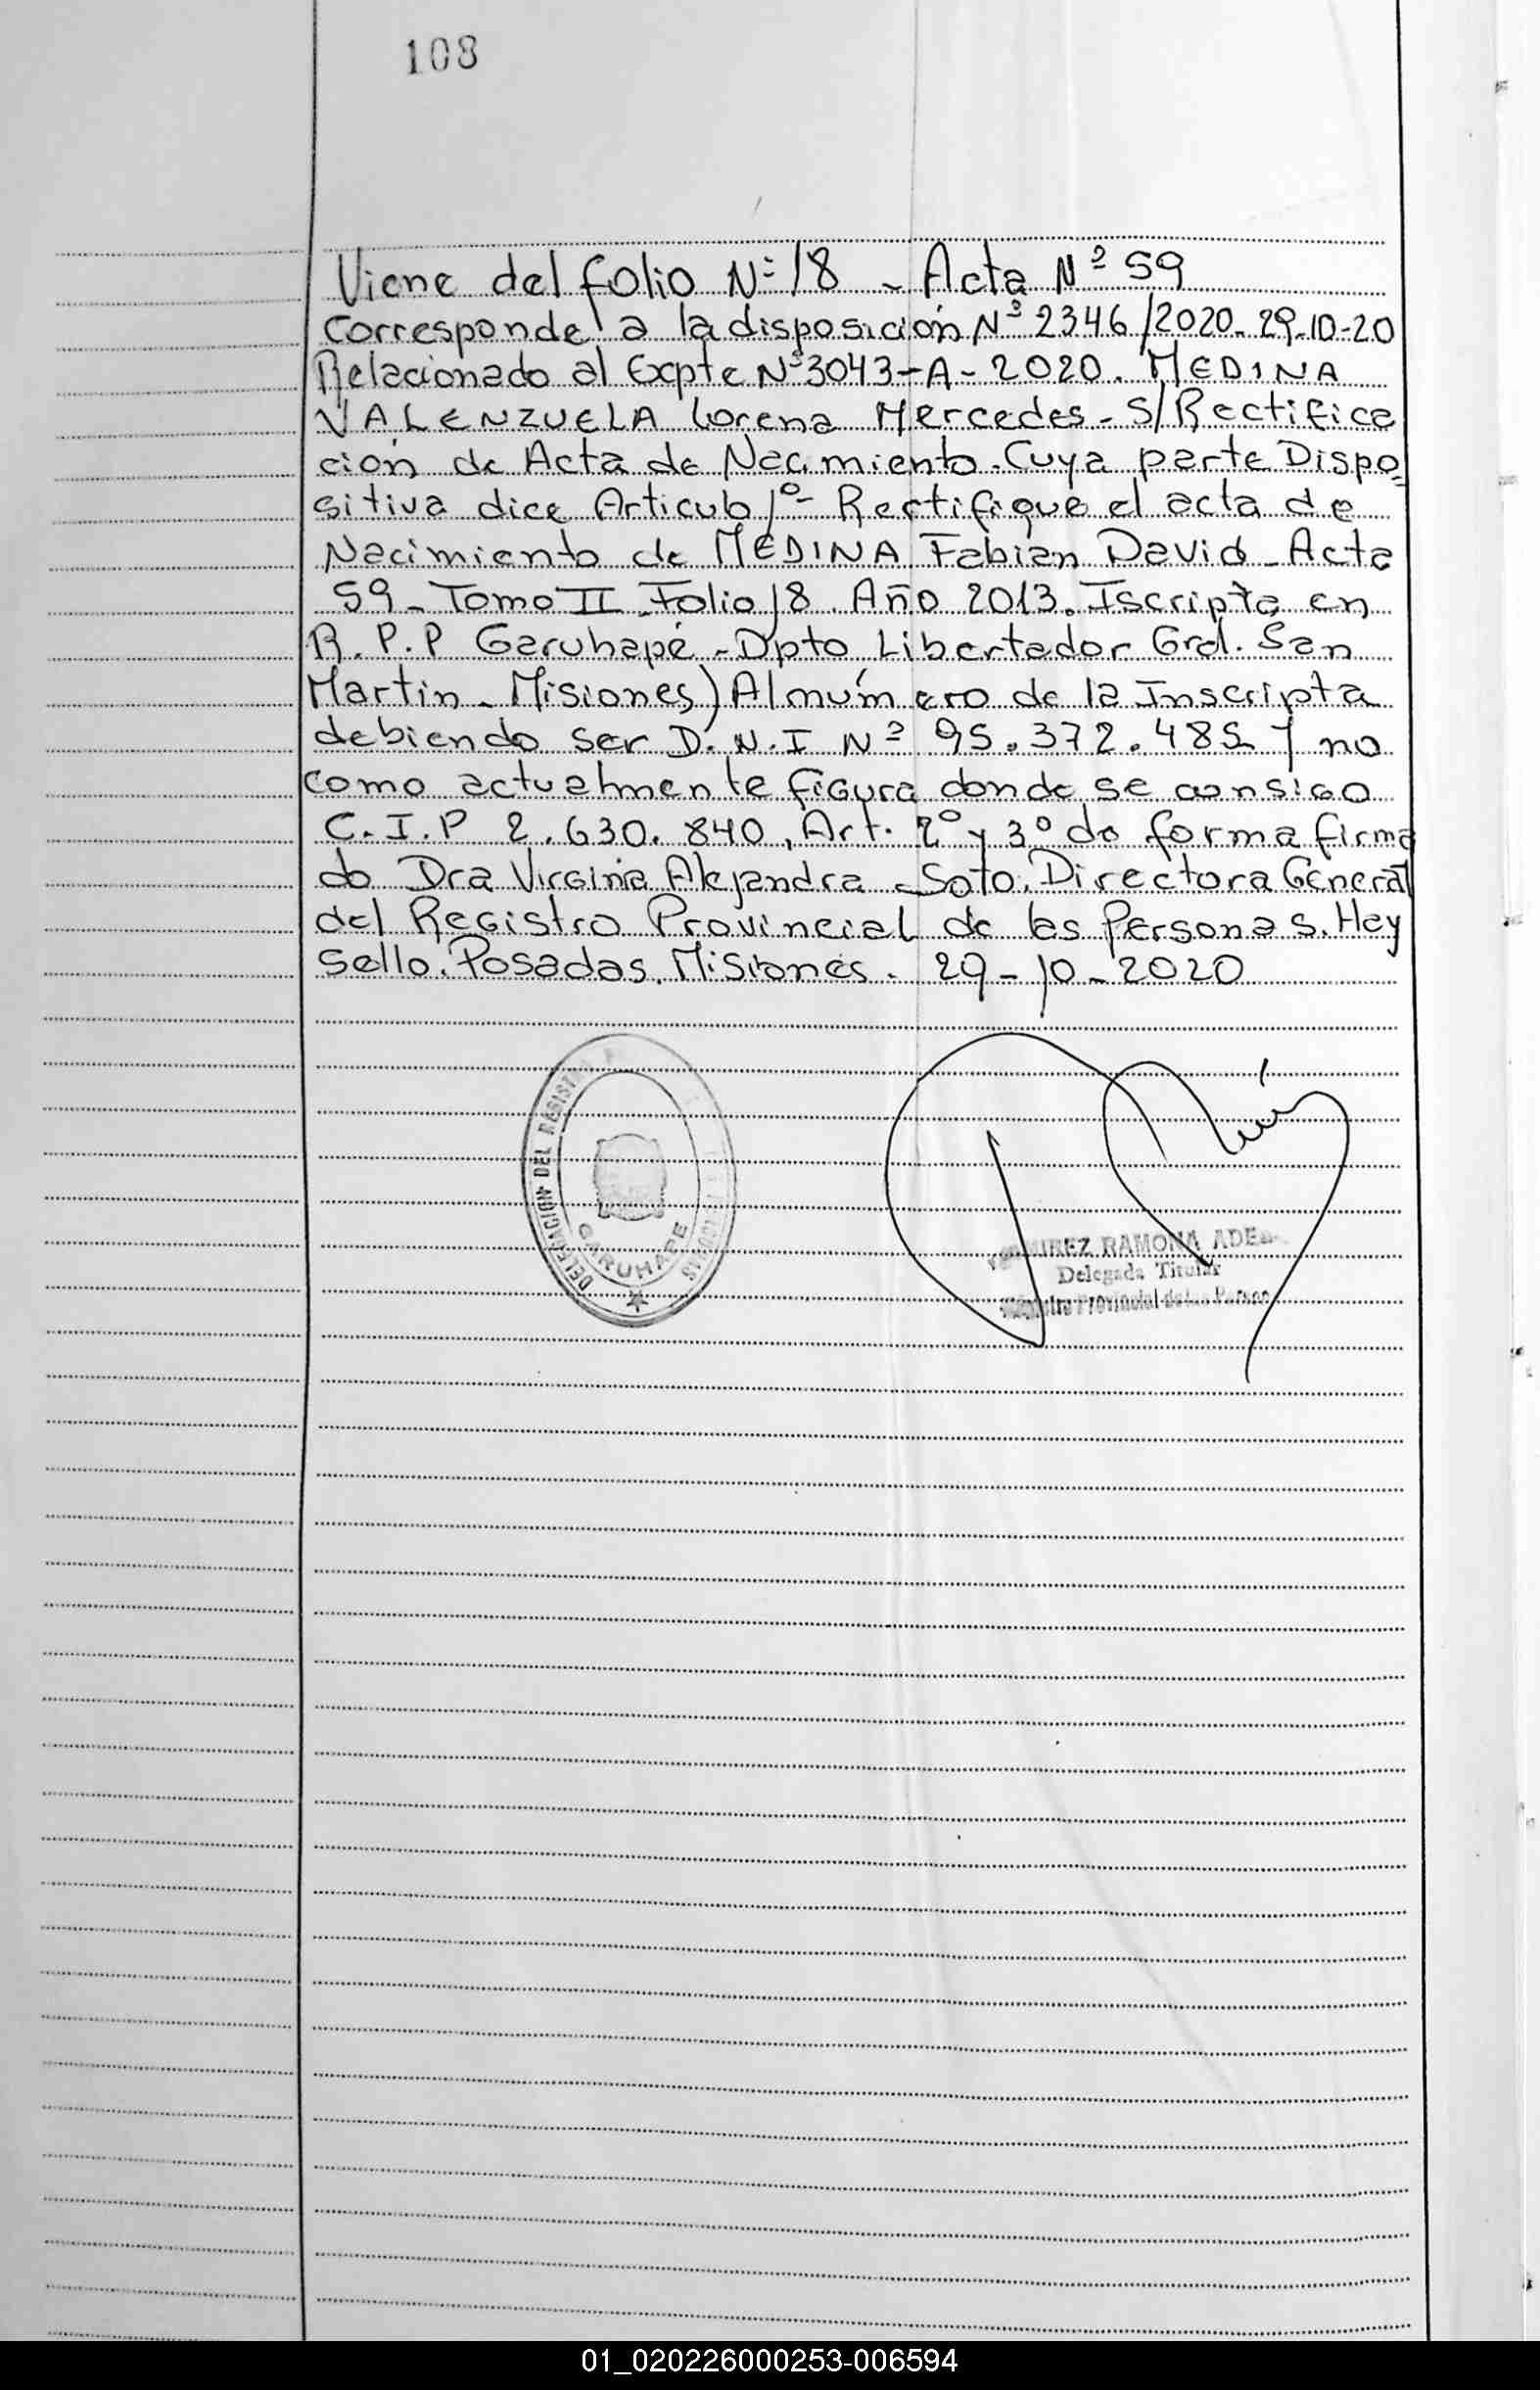 108
Viene del folio Nº 18 - Acta Nº 59
Corresponde a la disposición Nº 2346/2020-29-10-20
Relacionado al Expte Nº 3043-A-2020. MEDINA
VALENZUELA Lorena Mercedes - S/Rectifica
ción de Acta de Nacimiento. Cuya parte Dispo=
sitiva dice Articulo 1º- Rectifique el acta de
Nacimiento de MEDINA Fabian David - Acta
59 - Tomo II Folio 18. Año 2013. Iscripta en
R.P.P Garuhapé - Dpto Libertador Gral. San
Martín - Misiones) Al número de la Inscripta
debiendo ser D.N.I Nº 95.372.485 y no
como actualmente figura donde se consigo
C.I.P 2.630.840, Art. 2º y 3º de forma firma
do Dra Virginia Alejandra - Soto. Directora General
del Registro Provincial de las Personas. Hay
sello. Posadas. Misiones - 29-10-2020
DELEGACION DEL REGISTRO
GARUHAPE
RAMONA
Delegada Titular
Provincial de las
01_020226000253-006594